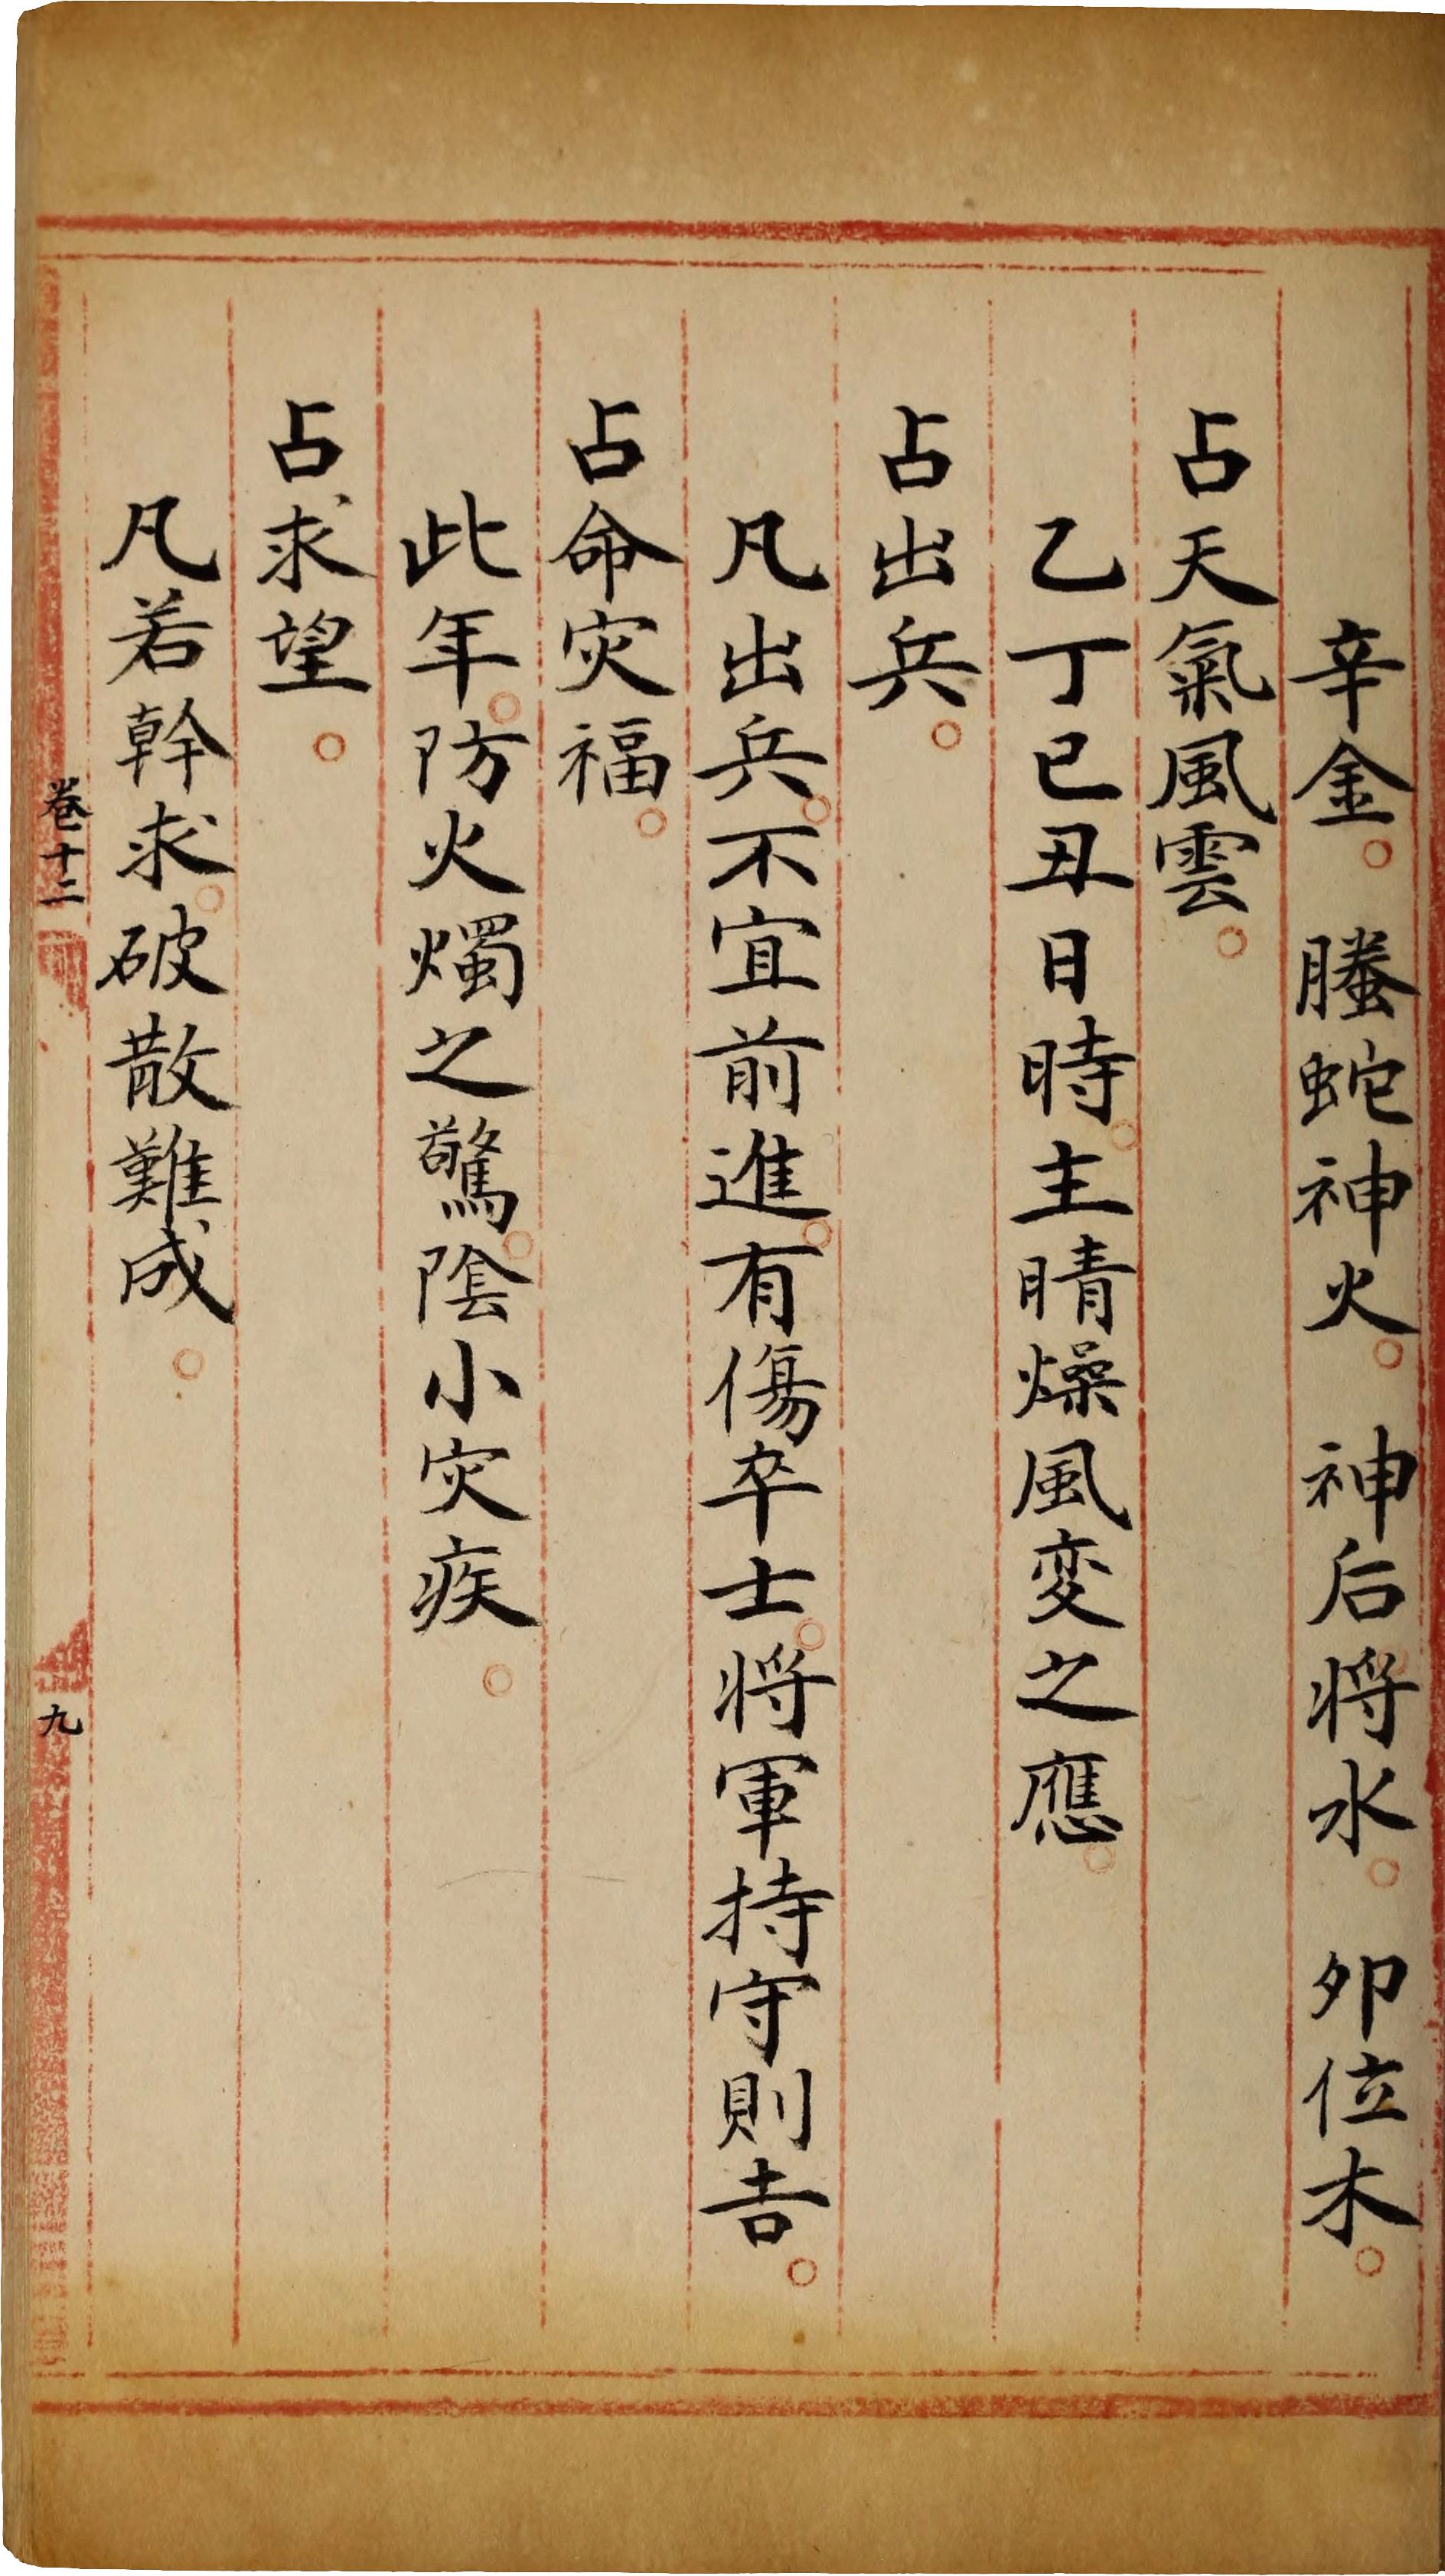 辛金。螣蛇神火。神后将水。夘位木。
占天氣風雲。
乙丁巳丑日時。主晴燥風変之應。
占出兵。
凡出兵。不宜前進。有傷卒士。将軍持守則吉。
占命灾福。
此年。防火燭之驚。陰小灾疾。
占求望。
凡若幹求。破散難成。
卷十二
九